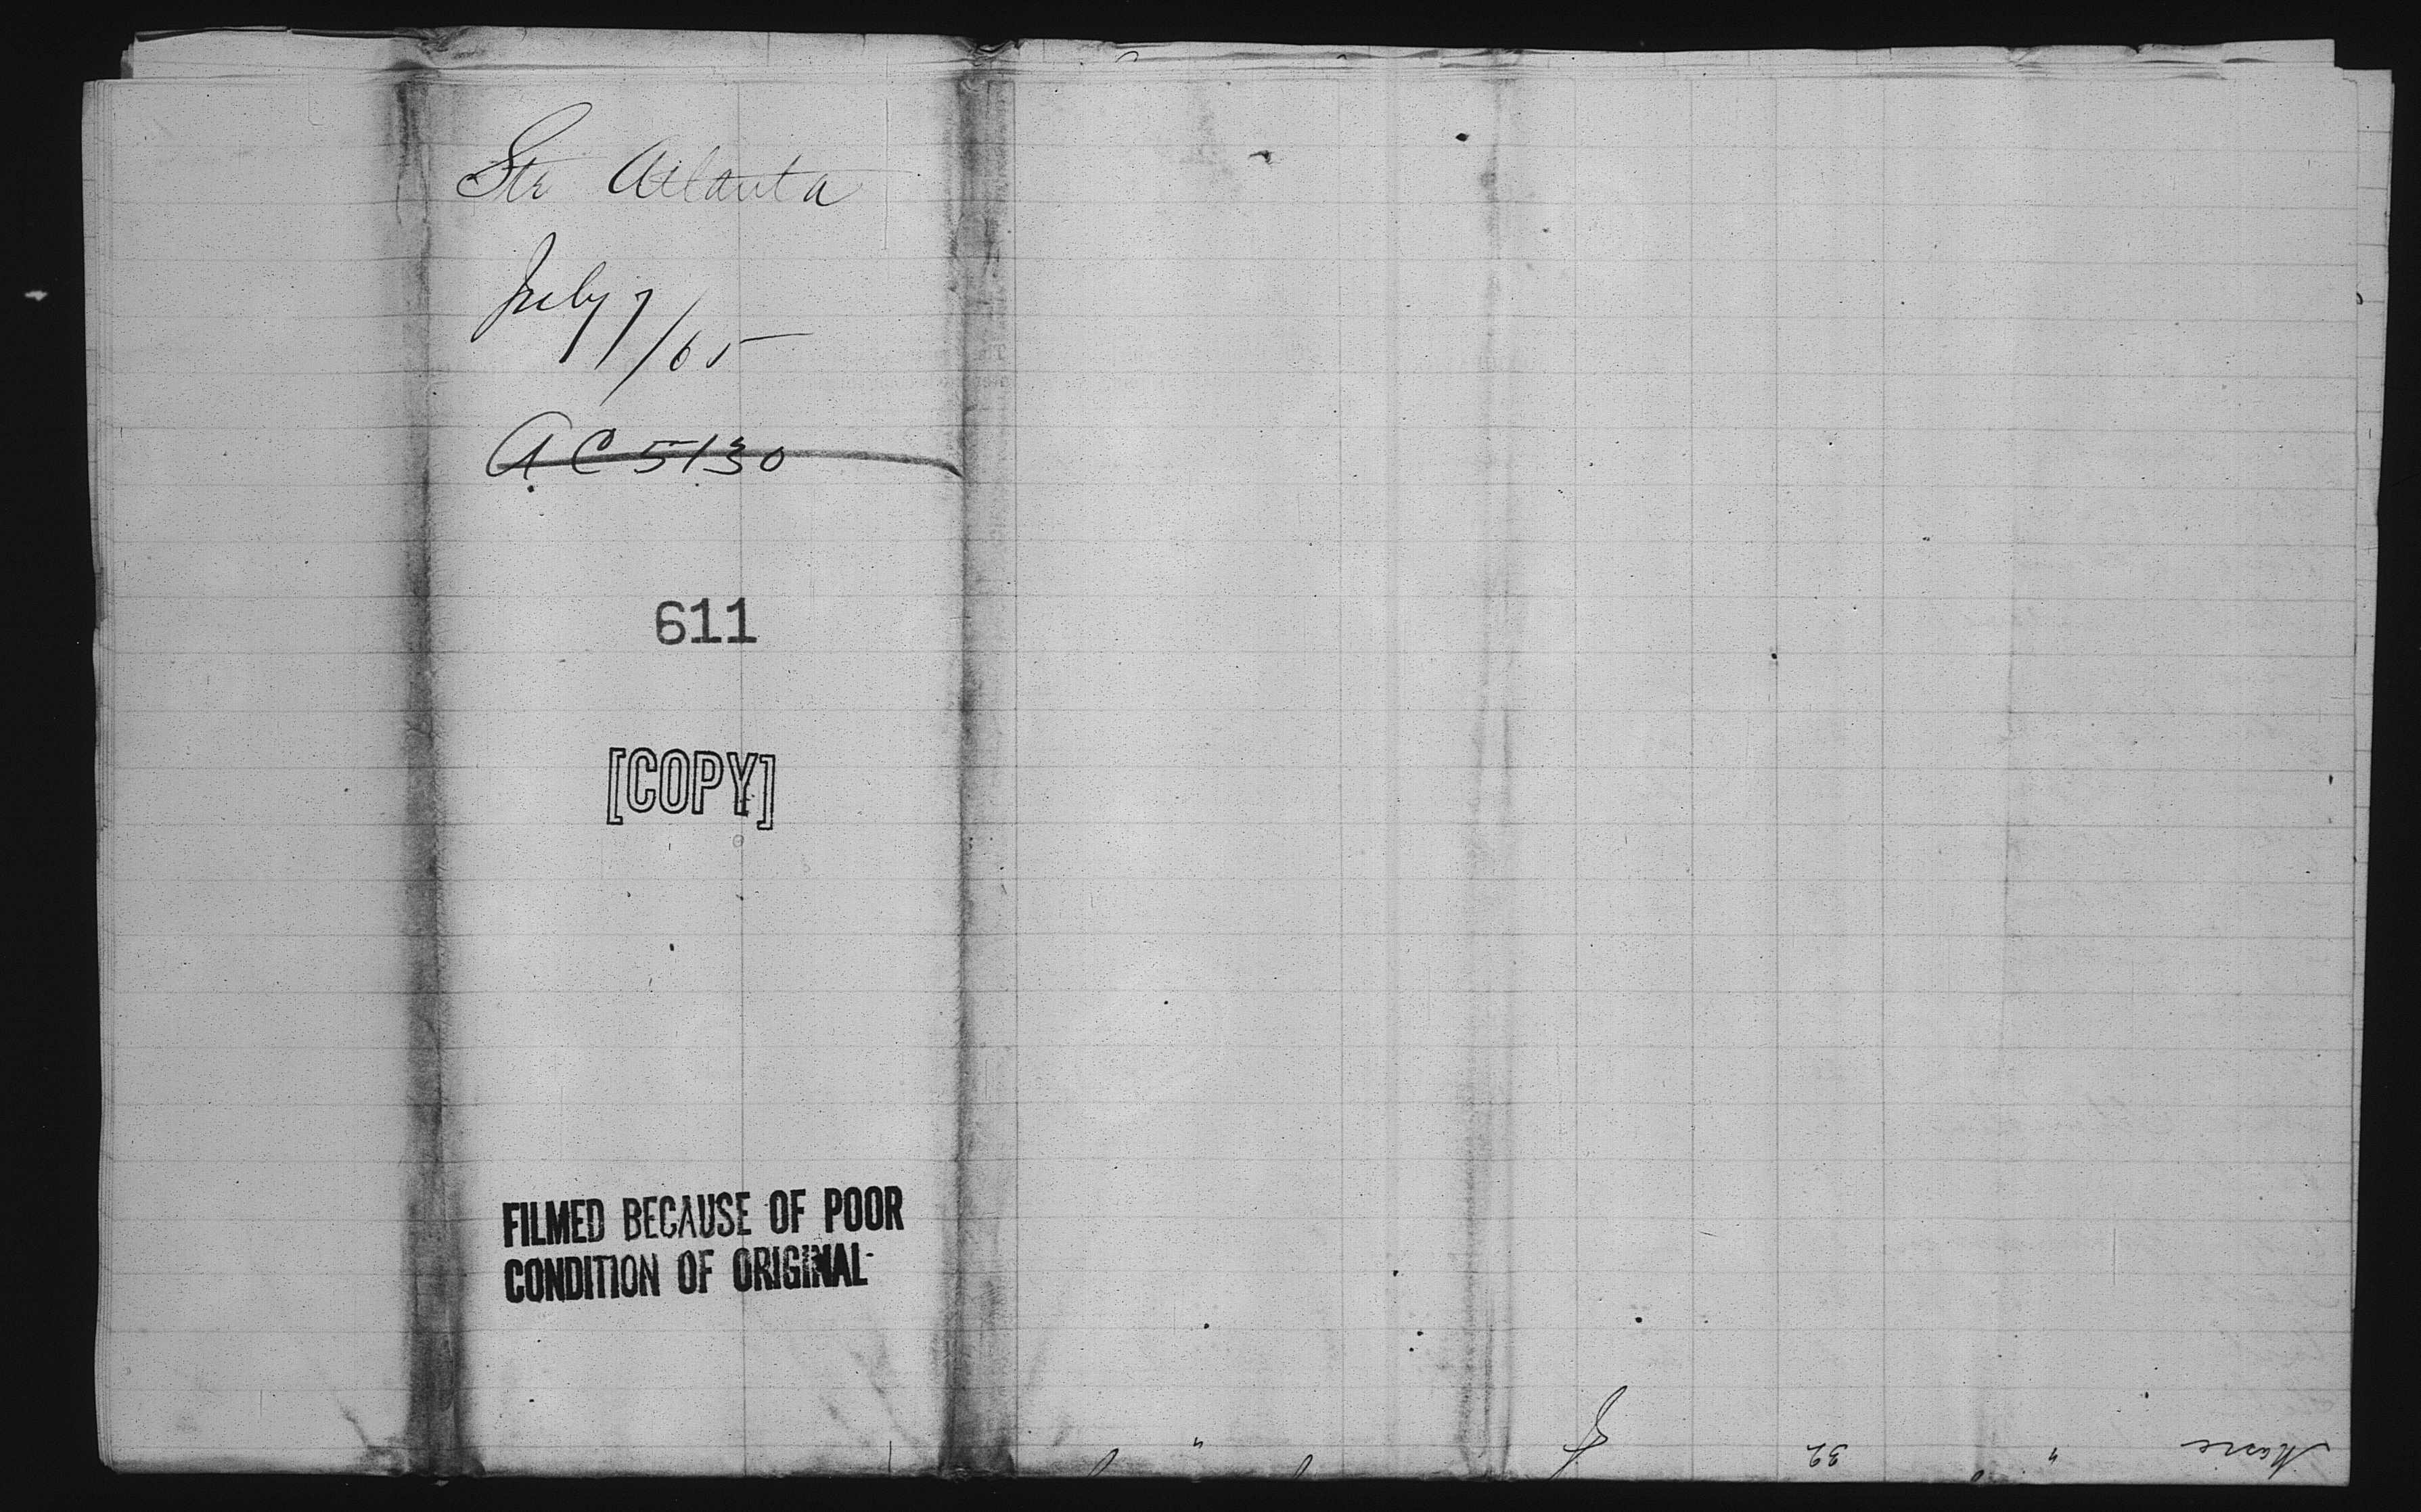 Str Atlanta
July 7/65
AC 5130
611
[COPY]
FILMED BECAUSE OF POOR
CONDITION OF ORIGINAL
" 32 "